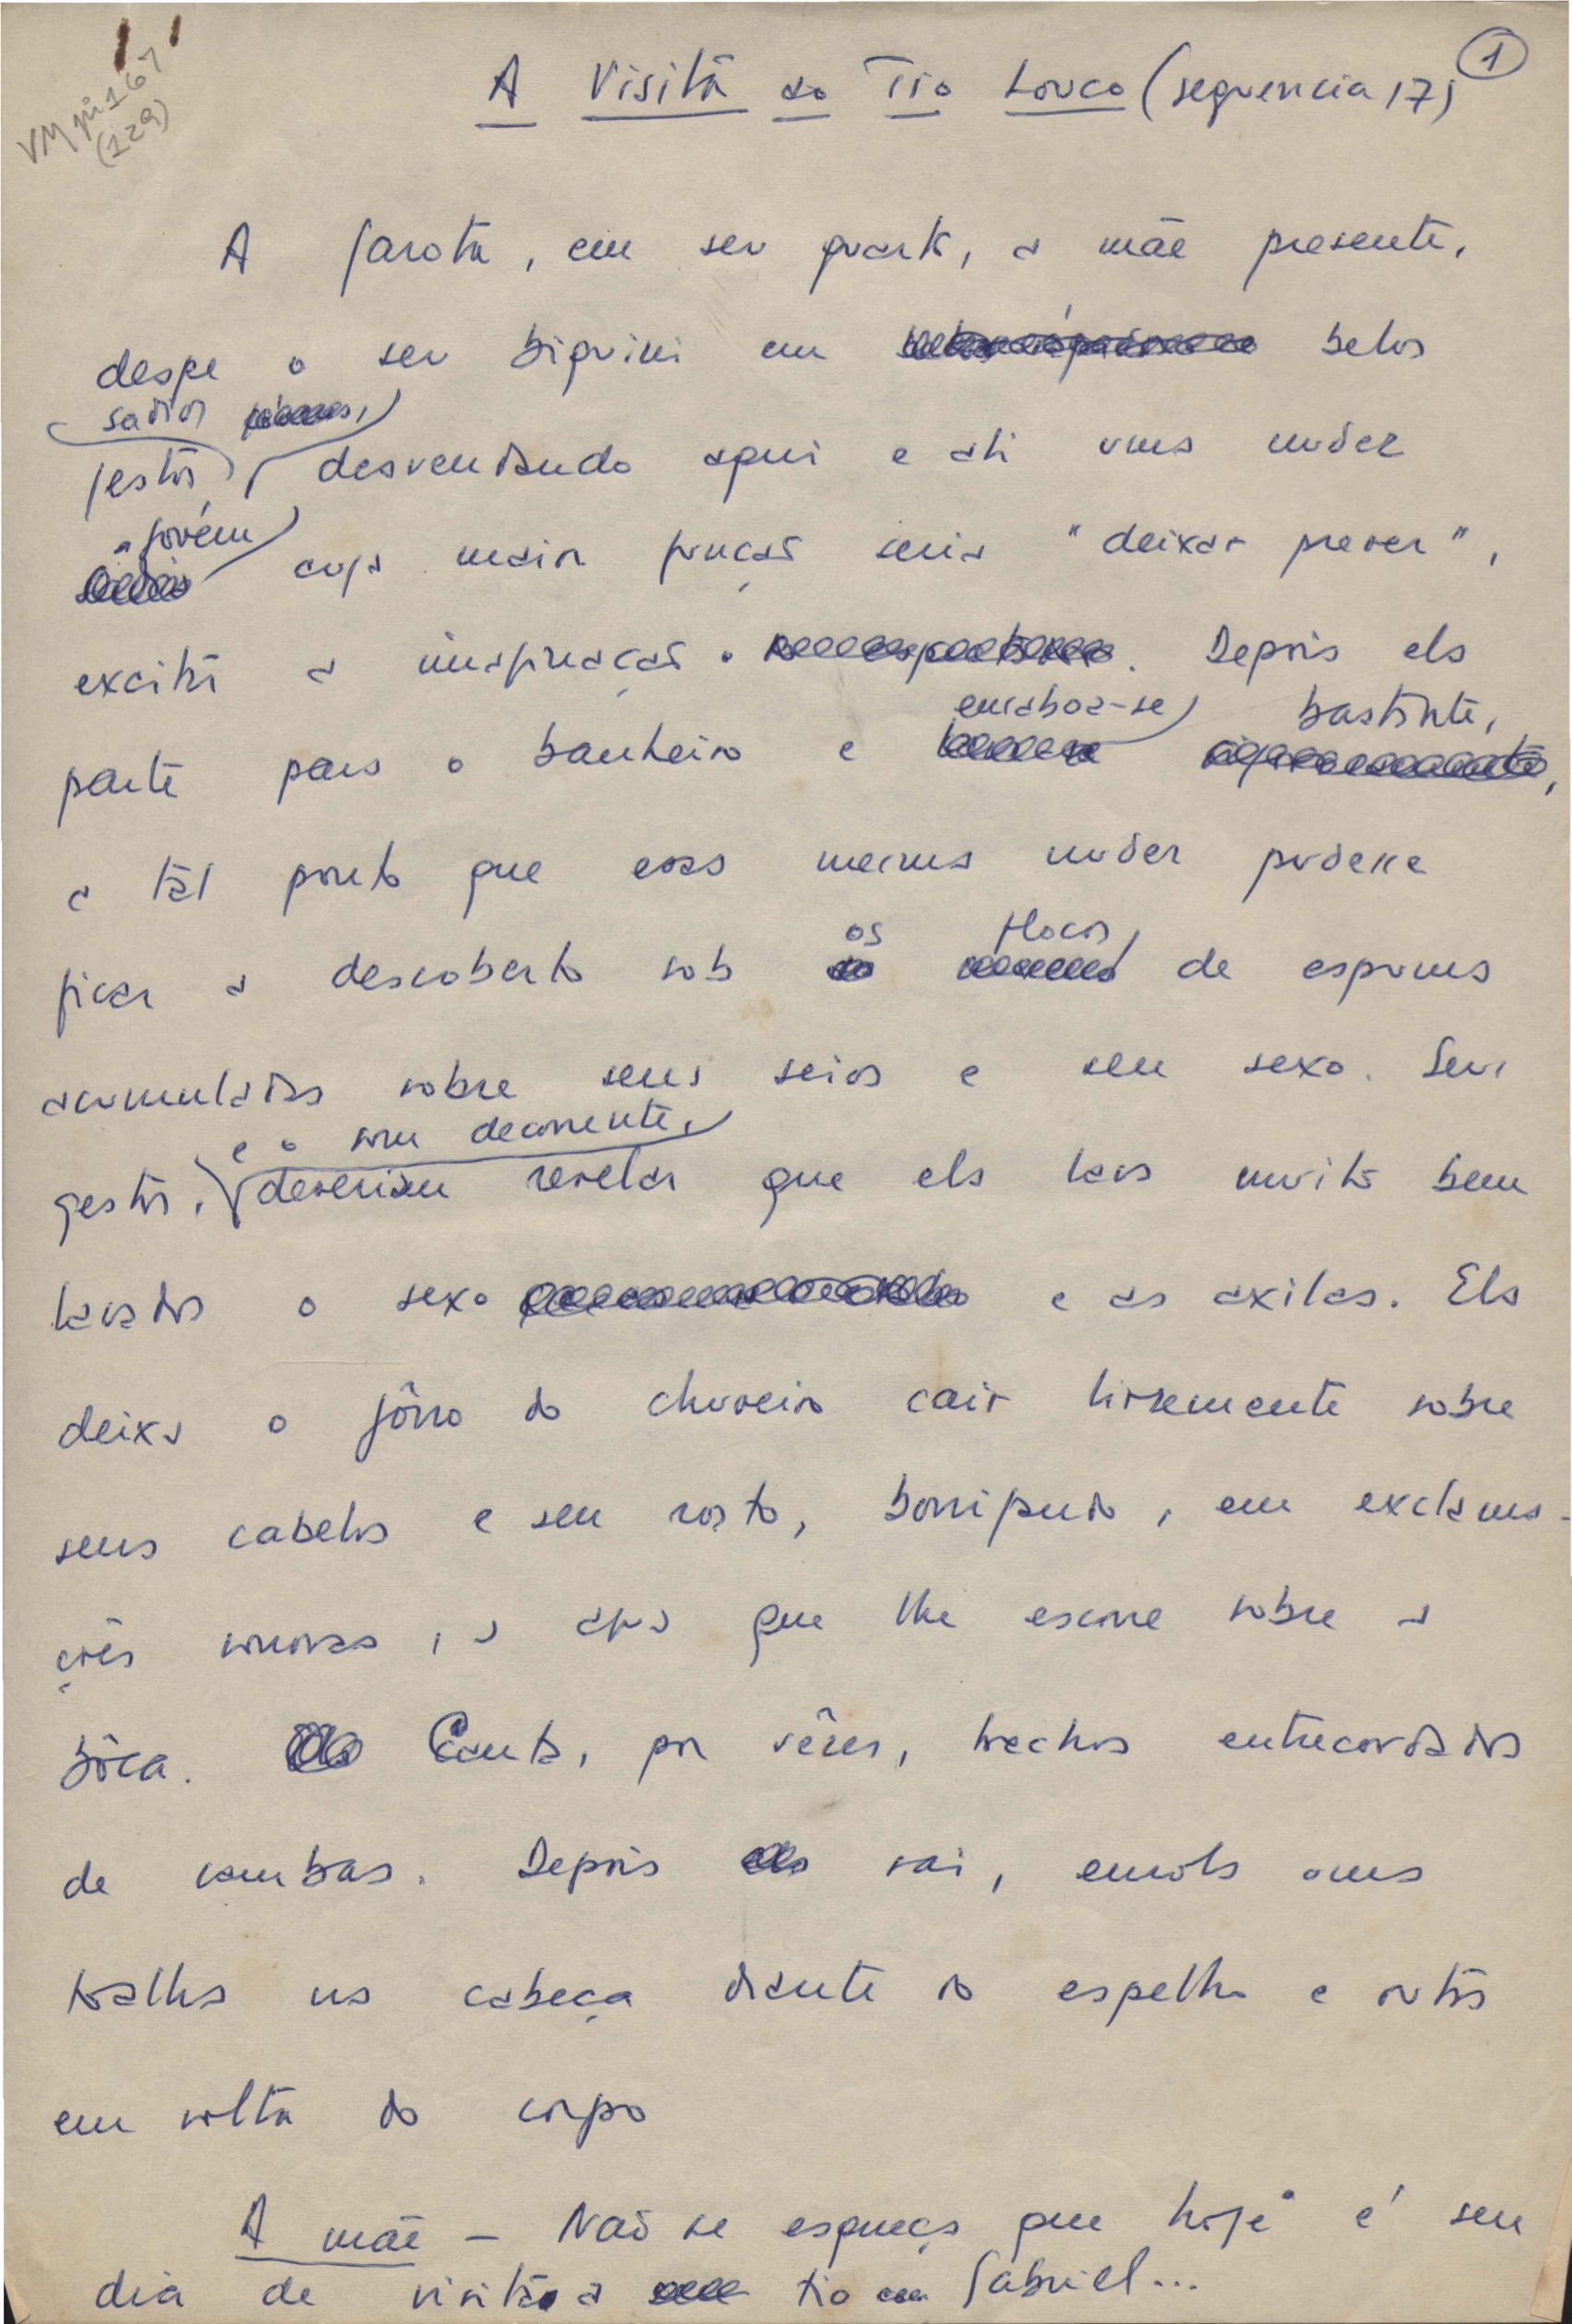 VM pi 167
(129)
1
A Visita do Tio Louco (sequencia 17)
A garota, em seu quarto, a mãe presente,
despe o seu biquini em belos
sadios
gestos, desvendando aqui e ali uma nudez
jovem cuja maior função seria "deixar prever",
excitar a imaginação. Depois ela
ensaboa-se bastante,
parte para o banheiro e
a tal ponto que essa mesma nudez pudesse
os flocos
ficar a descoberto sob de espuma
acumulados sobre seus seios e seu sexo. Seus
e o som decorrente,
gestos, deveriam revelar que ela lava muito bem
lavados o sexo e as axilas. Ela
deixa o jôrro do chuveiro cair livremente sobre
seus cabelos e seu rosto, borrifando, em exclama-
ções sonoras, a água que lhe escorre sobre a
bôca. Canta, por vêzes, trechos entrecortados
de sambas. Depois sai, enrola uma
toalha na cabeça diante do espelho e outra
em volta do corpo
A mãe - Não se esqueça que hoje é seu
dia de visita a tio Gabriel...